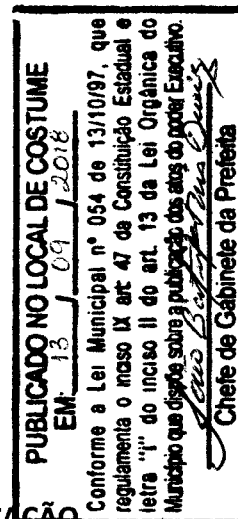 PUBLICADO NO LOCAL DE COSTUME
EM: 13 / 09 / 2018
Conforme a Lei Municipal nº 054 de 13/10/97, que
regulamenta o inciso IX art 47 da Constituição Estadual e
letra "j" do inciso II do art. 13 da Lei Orgânica do
Município que dispõe sobre a publicação dos atos do poder Executivo.
Chefe de Gabinete da Prefeita